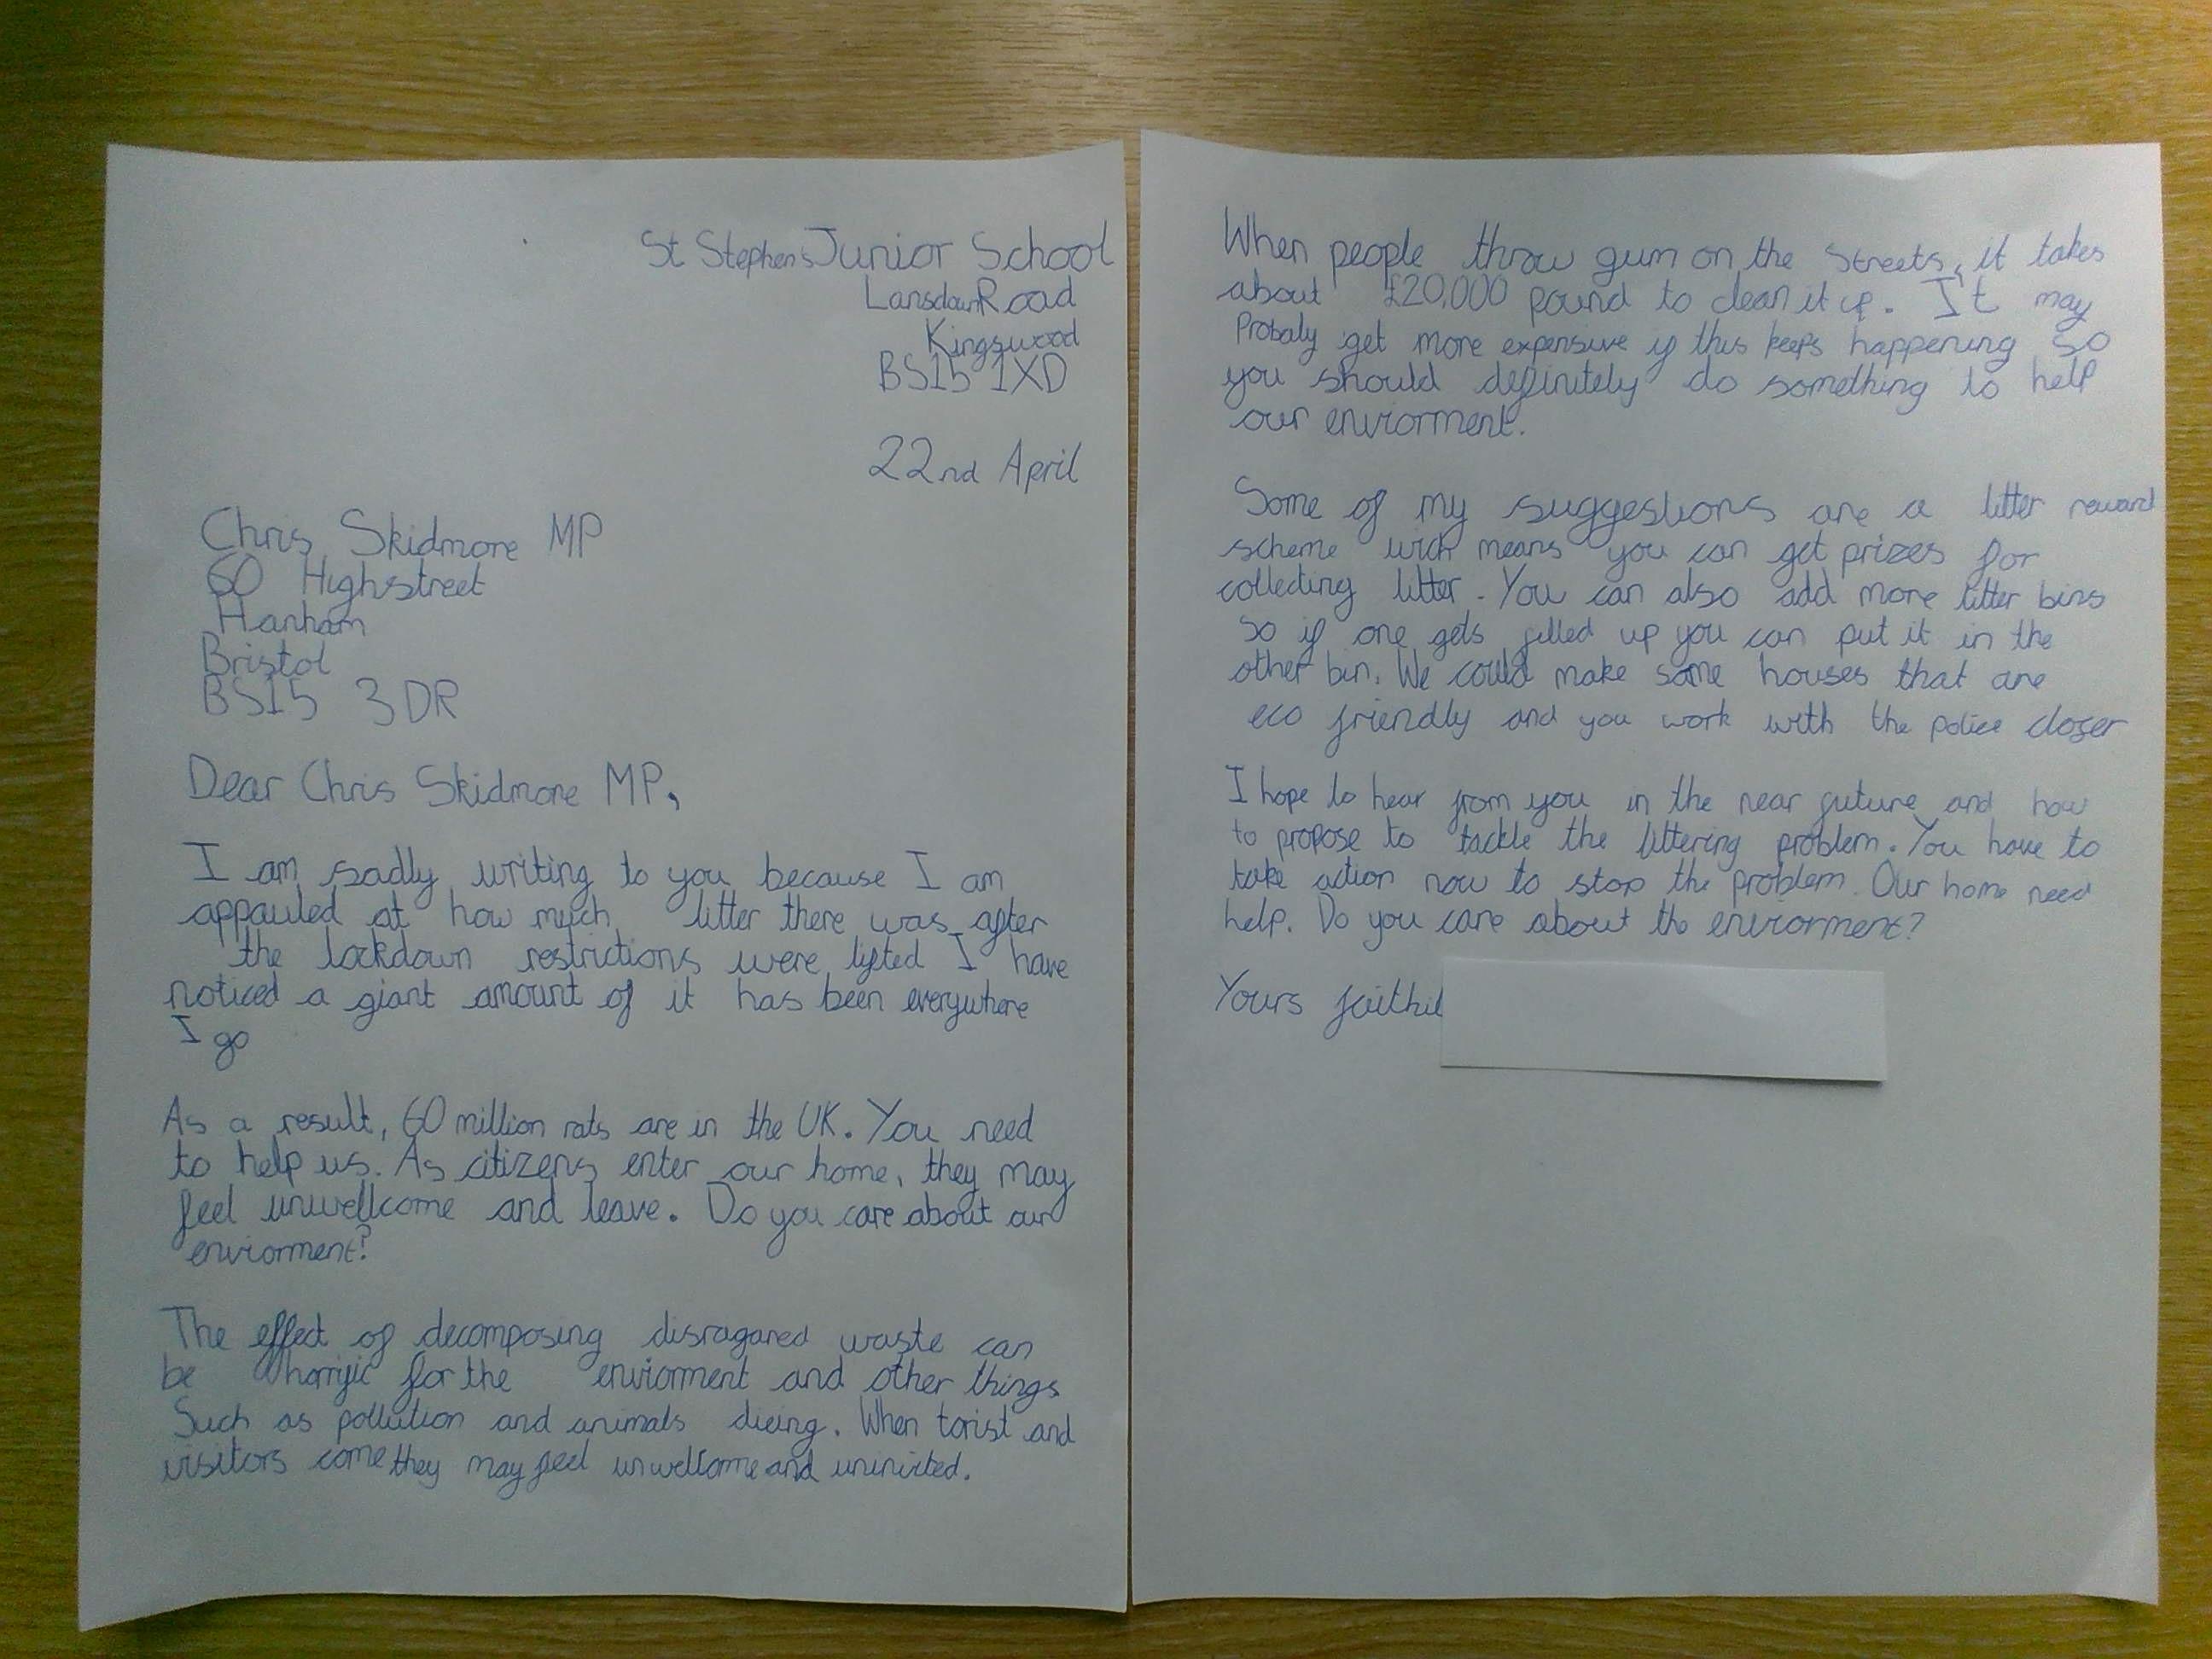 St Stephens Junior School
Lansdown Road
Kingswood
BS15 1XD
22nd April
Chris Skidmore MP
60 Highstreet
Hanham
Bristol
BS15 3DR
Dear Chris Skidmore MP,
I am sadly writing to you because I am
appauled at how much litter there was after
the lockdown restrictions were lifted I have
noticed a giant amount of it has been everywhere
I go
As a result, 60 million rats are in the UK. You need
to help us. As citizens enter our home, they may
feel unwellcome and leave. Do you care about our
enviorment?
The effect of decomposing disragared waste can
be horrific for the enviorment and other things
Such as pollution and animals dieing. When torist and
visitors come they may feel unwellcome and uninvited.
When people throw gum on the Streets, it takes
about £20,000 pound to clean it up. It may
Probaly get more expensive if this keeps happening so
you should definitely do something to help
our enviorment.
Some of my suggestions are a litter reward
scheme wich means you can get prizes for
collecting litter. You can also add more litter bins
so if one gets filled up you can put it in the
other bin. We could make some houses that are
eco friendly and you work with the police closer
I hope to hear from you in the near future and how
to propose to tackle the littering problem. You have to
take action now to stop the problem. Our home need
help. Do you care about the enviorment?
Yours